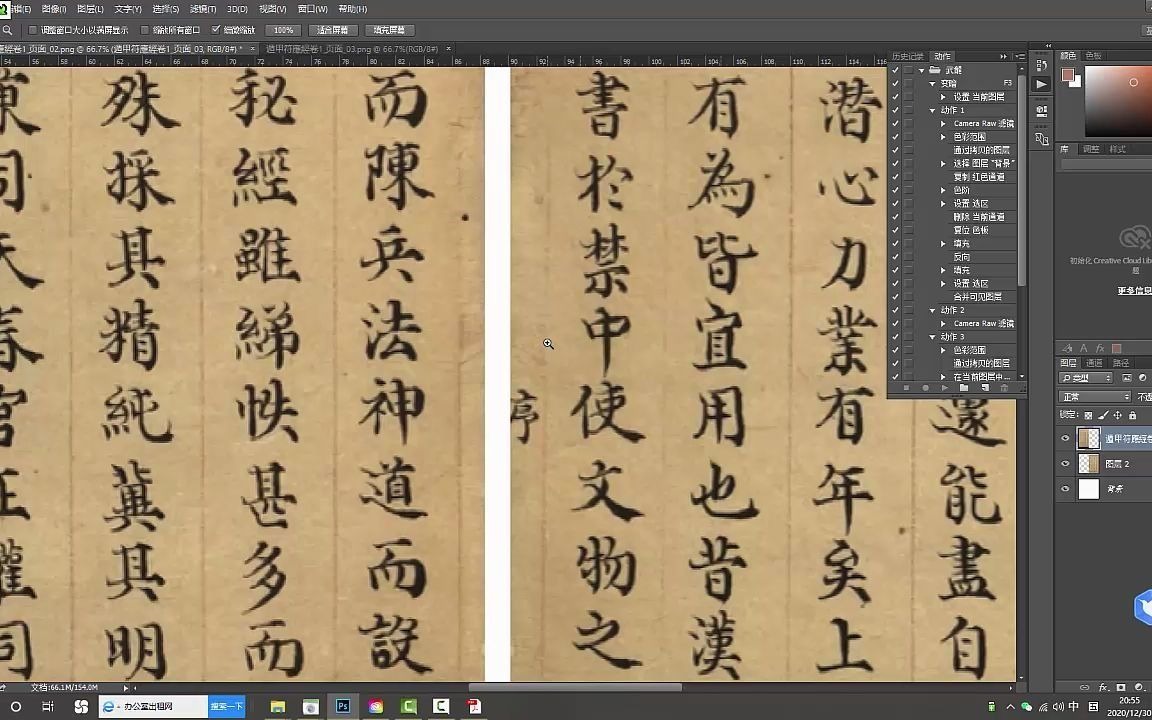 编辑(E) 图像(I) 图层(L) 文字(Y) 选择(S) 滤镜(T) 3D(D) 视图(V) 窗口(W) 帮助(H)
调整窗口大小以满屏显示 缩放所有窗口 细微缩放 100% 适合屏幕 填充屏幕
應經卷1_页面_02.png @ 66.7% (遁甲符應經卷1_页面_03, RGB/8#) * × 遁甲符應經卷1_页面_03.png @ 66.7%(RGB/8#) ×
54 56 58 60 62 64 66 68 70 72 74 76 78 80 82 84 86 88 90 92 94 96 98 100 102 104 106 108 110 112 114 116
能盡自
潛心力業有年矣上
有為皆宜用也昔漢
書於禁中使文物之
序
而陳兵法神道而設
秘經雖綈帙甚多而
殊採其精純冀其明
历史记录 动作
变暗 F3
设置 当前图层
动作 1
Camera Raw 滤镜
色彩范围
通过拷贝的图层
选择 图层 "背景"
复制 红色通道
色阶
设置 选区
删除 当前通道
复位 色板
填充
反向
填充
设置 选区
合并可见图层
动作 2
Camera Raw 滤镜
动作 3
色彩范围
通过拷贝的图层
在当前图层中...
颜色 色板
库 调整 样式
初始化 Creative Cloud Lib
更多信息
图层 通道 路径
类型
正常 不透
锁定:
遁甲符應經卷
图层 2
背景
文档:66.1M/154.0M
办公室出租网 搜索一下
中
20:55
2020/12/30